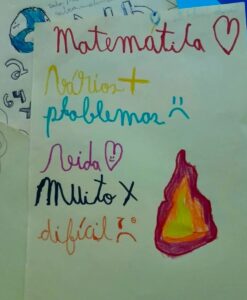 Matemática ♡
Vários +
problemas :(
Vida ♡
Muito X
difícil :(
64